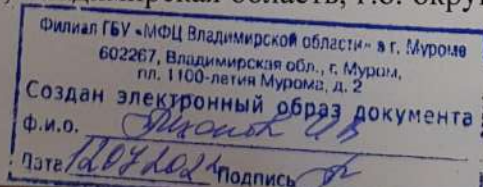 область, г.о. окру
Филиал ГБУ «МФЦ Владимирской области» в г. Муроме
602267, Владимирская обл., г. Муром,
пл. 1100-летия Мурома, д. 2
Создан электронный образ документа
Ф.И.О.
Дата 12072022 Подпись